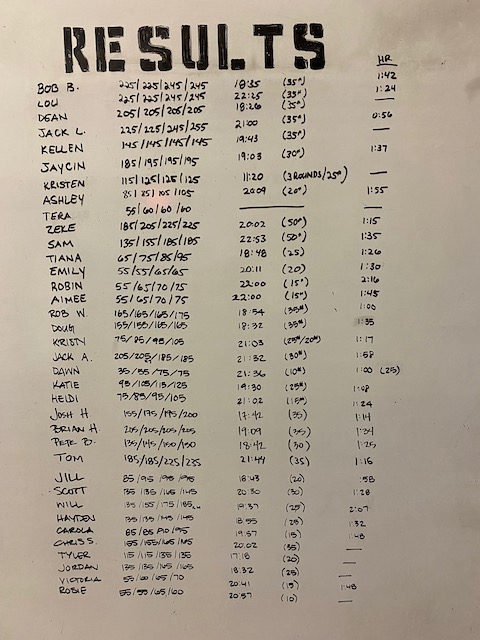 RESULTS
HR
BOB B. 225/225/245/245 18:35 (35#) 1:42
LOU 225/225/245/245 22:25 (35#) 1:24
DEAN 205/205/205/205 18:26 (35#) —
JACK L. 225/225/245/255 21:00 (35#) 0:56
KELLEN 145/145/145/145 19:43 (35#) —
JAYCIN 185/195/195/195 19:03 (30#) 1:37
KRISTEN 115/125/125/125 11:20 (3 ROUNDS/25#) —
ASHLEY 105/105 20:09 (20#) 1:55
TERA 55/60/60/60 —
ZEKE 185/205/225/225 20:02 (50#) 1:15
SAM 135/155/185/185 22:53 (50#) 1:35
TIANA 65/75/85/95 18:48 (25) 1:26
EMILY 55/55/65/65 20:11 (20) 1:30
ROBIN 55/65/70/75 22:00 (15#) 2:16
AIMEE 55/65/70/75 22:00 (15#) 1:45
ROB W. 165/165/165/175 18:54 (35#) 1:00
DOUG 155/155/165/165 18:32 (35#) 1:35
KRISTY 75/85/95/105 21:03 (25#/20#) 1:17
JACK A. 205/205/185/185 21:32 (30#) 1:58
DAWN 35/55/75/75 21:36 (10#) 1:00 (25)
KATIE 95/105/115/125 19:30 (25#) 1:08
HEIDI 75/85/95/105 21:02 (15#) 1:24
JOSH H 155/175/195/200 17:42 (35) 1:14
BRIAN H. 205/205/205/225 19:09 (35) 1:34
PETE B. 135/145/150/150 18:42 (30) 1:25
TOM 185/185/225/235 21:44 (35) 1:16
JILL 85/95/95/95 18:43 (20) :58
SCOTT 135/135/165/145 20:30 (30) 1:28
WILL 135/155/175/185 19:37 (25) 2:07
HAYDEN 135/135/145/145 18:55 (25) 1:32
CAROLA 85/85/90/95 19:57 (15) 1:48
CHRIS S. 155/155/165/165 20:02 (35) —
TYLER 115/115/135/135 17:18 (20) —
JORDAN 135/135/165/165 18:32 (25) —
VICTORIA 55/60/65/70 20:41 (15) 1:48
ROSIE 55/55/65/60 20:57 (10) —